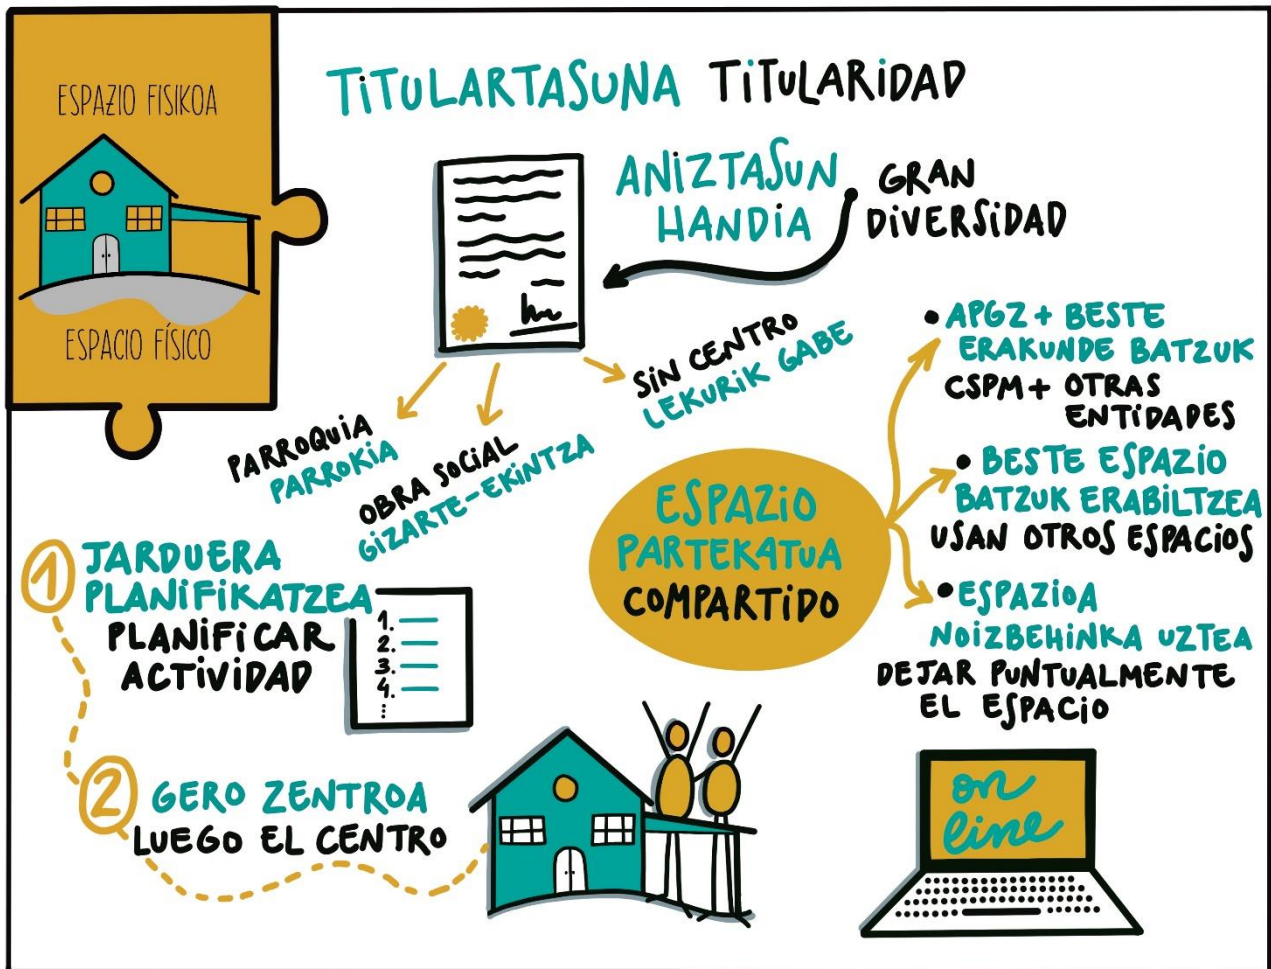 ESPAZIO FISIKOA
ESPACIO FÍSICO
TiTULARTASUNA TiTULARiDAD
ANiZTASUN
HANDiA
GRAN
DiVERSiDAD
PARROQUiA
PARROKiA
OBRA SOCiAL
GiZARTE-EKiNTZA
SiN CENTRO
LEKURiK GABE
ESPAZiO
PARTEKATUA
COMPARTiDO
• APGZ + BESTE
ERAKUNDE BATZUK
CSPM + OTRAS
ENTiDADES
• BESTE ESPAZiO
BATZUK ERABiLTZEA
USAN OTROS ESPACiOS
• ESPAZiOA
NOiZBEHiNKA UZTEA
DEJAR PUNTUALMENTE
EL ESPACiO
1 JARDUERA
PLANiFiKATZEA
PLANiFiCAR
ACTiViDAD
1.
2.
3.
4.
2 GERO ZENTROA
LUEGO EL CENTRO
on
line